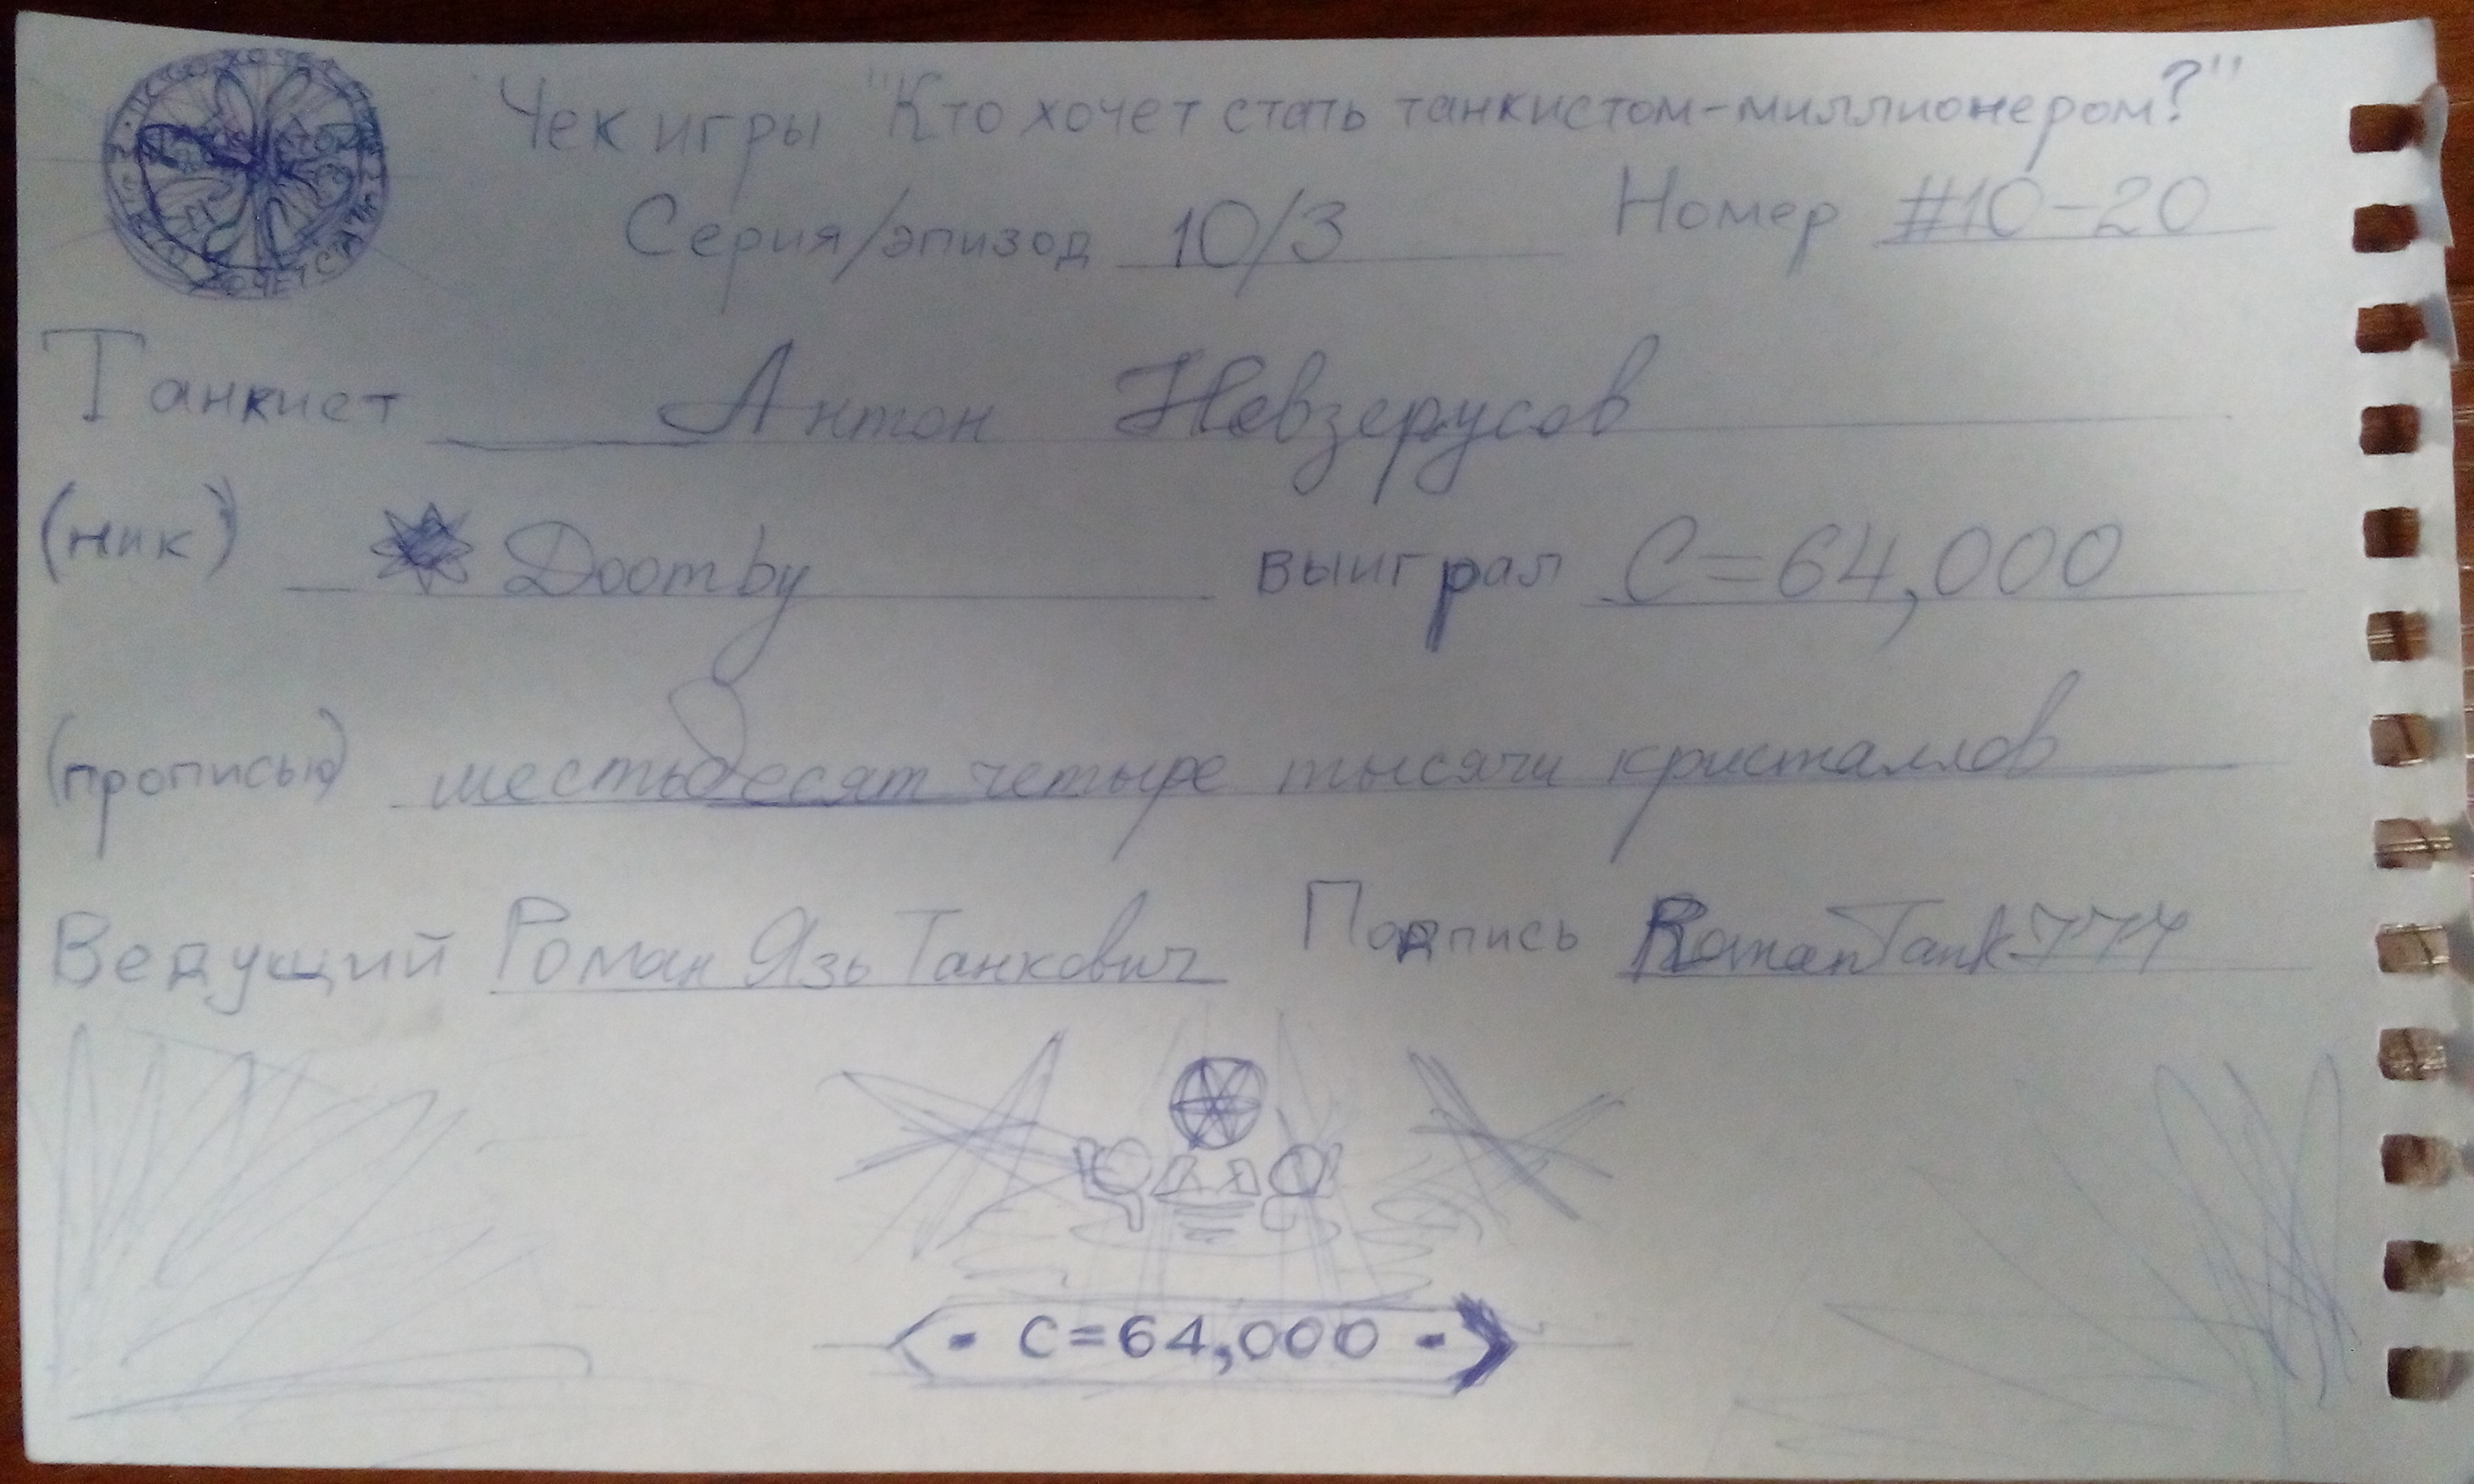 Чек игры "Кто хочет стать танкистом-миллионером?"
Серия/эпизод 10/3 Номер #10-20
Танкист Антон Невзерусов
(ник) Doomby выиграл C=64,000
(прописью) шестьдесят четыре тысячи кристаллов
Ведущий Роман Язь Танкович Подпись RomanTank774
- C=64,000 -